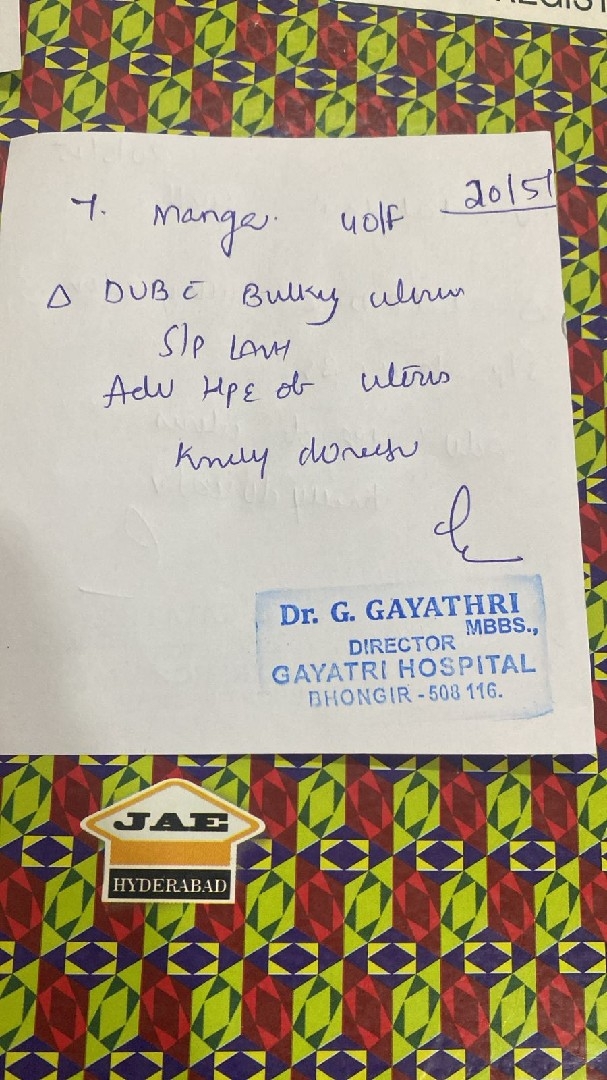 REGIST
20/5/
Y. Manga. 40/F
Δ DUB c̄ Bulky uterus
S/P LAVH
Adv HPE of uterus
Kindly do needful
Dr. G. GAYATHRI
MBBS.,
DIRECTOR
GAYATRI HOSPITAL
BHONGIR - 508 116.
JAE
HYDERABAD